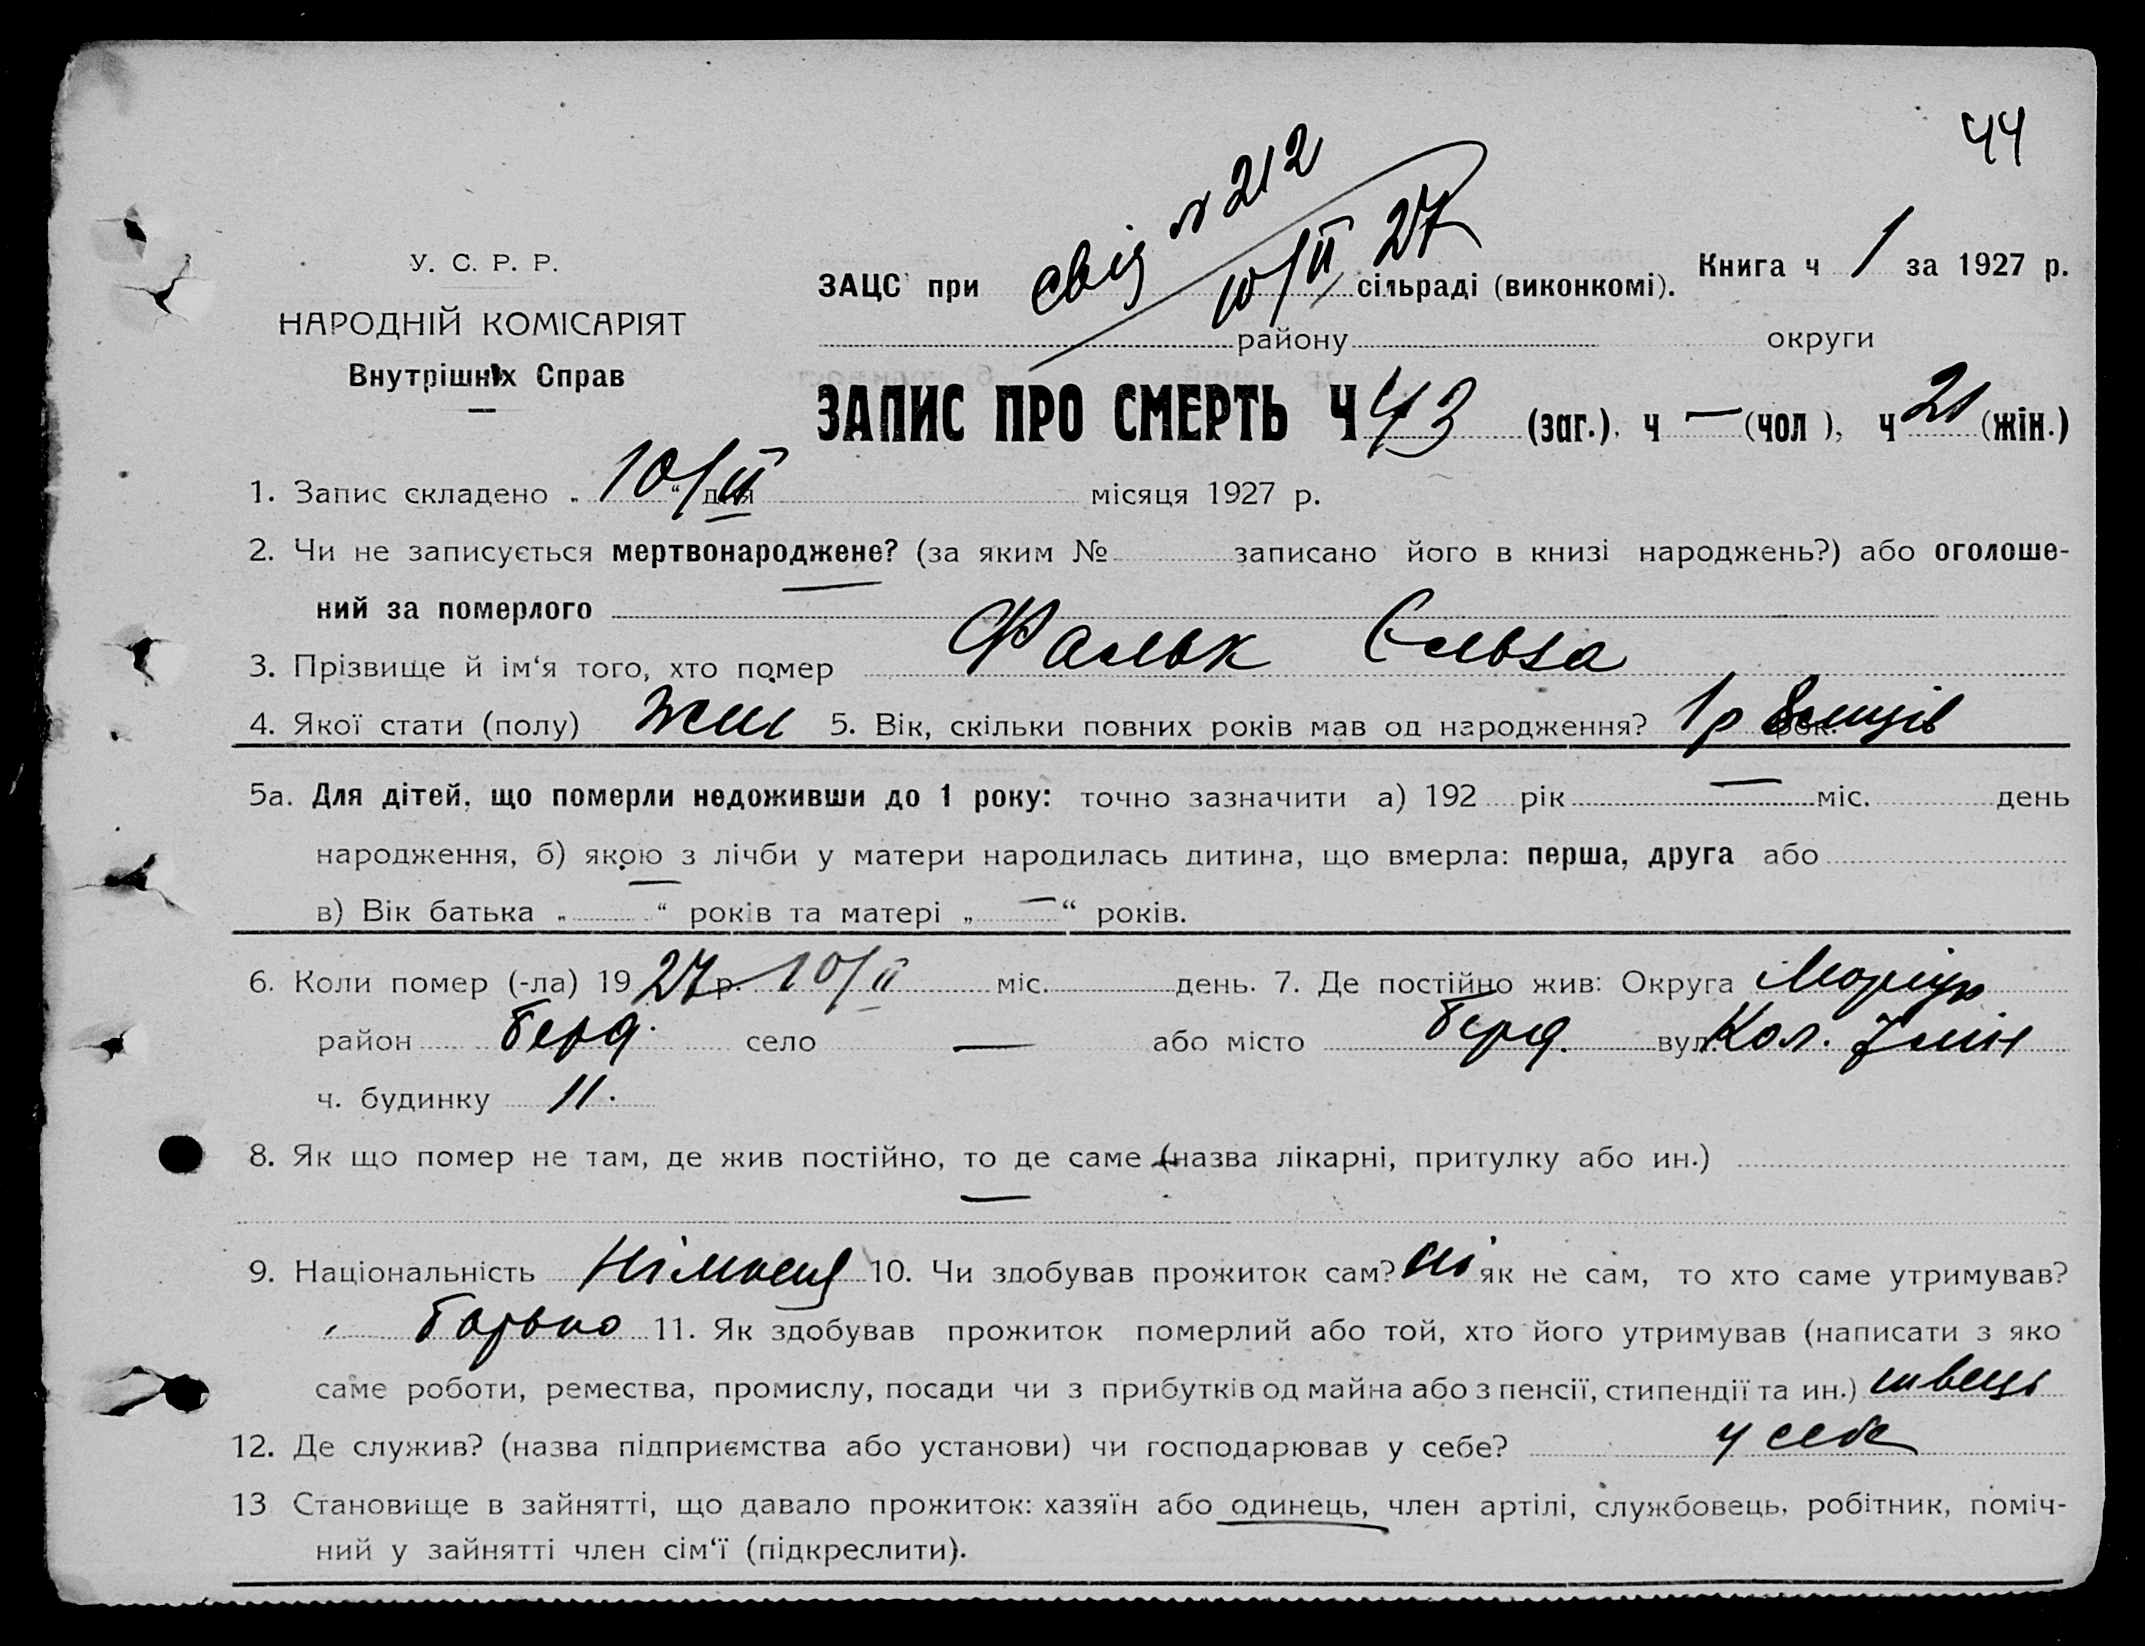 44
свід № 212
10/II 27
У. С. Р. Р.
НАРОДНІЙ КОМІСАРІЯТ
Внутрішніх Справ
ЗАЦС при сільраді (виконкомі). Книга ч 1 за 1927 р.
району округи
ЗАПИС ПРО СМЕРТЬ Ч 43 (заг.). ч — (чол ), ч 21 (жін.)
1. Запис складено „ 10/II “ дня місяця 1927 р.
2. Чи не записується мертвонароджене? (за яким № записано його в книзі народжень?) або оголоше-
ний за померлого —
3. Прізвище й ім‘я того, хто помер Фальк Ельза
4. Якої стати (полу) жін 5. Вік, скільки повних років мав од народження? 1 р 8 місців рок.
5а. Для дітей, що померли недоживши до 1 року: точно зазначити а) 192 рік — міс. день
народження, б) якою з лічби у матери народилась дитина, що вмерла: перша, друга або
в) Вік батька „ “ років та матері „ — “ років.
6. Коли помер (-ла) 19 27 р. 10/II міс. день. 7. Де постійно жив: Округа Маріуп
район Берд. село — або місто Берд. вул. Кол.
ч. будинку 11.
8. Як що помер не там, де жив постійно, то де саме (назва лікарні, притулку або ин.)
—
9. Національність німкеня 10. Чи здобував прожиток сам? ні як не сам, то хто саме утримував?
батько 11. Як здобував прожиток померлий або той, хто його утримував (написати з яко
саме роботи, ремества, промислу, посади чи з прибутків од майна або з пенсії, стипендії та ин.) швець
12. Де служив? (назва підприємства або установи) чи господарював у себе? у себе
13 Становище в зайнятті, що давало прожиток: хазяїн або одинець, член артілі, службовець, робітник, поміч-
ний у зайнятті член сім‘ї (підкреслити).